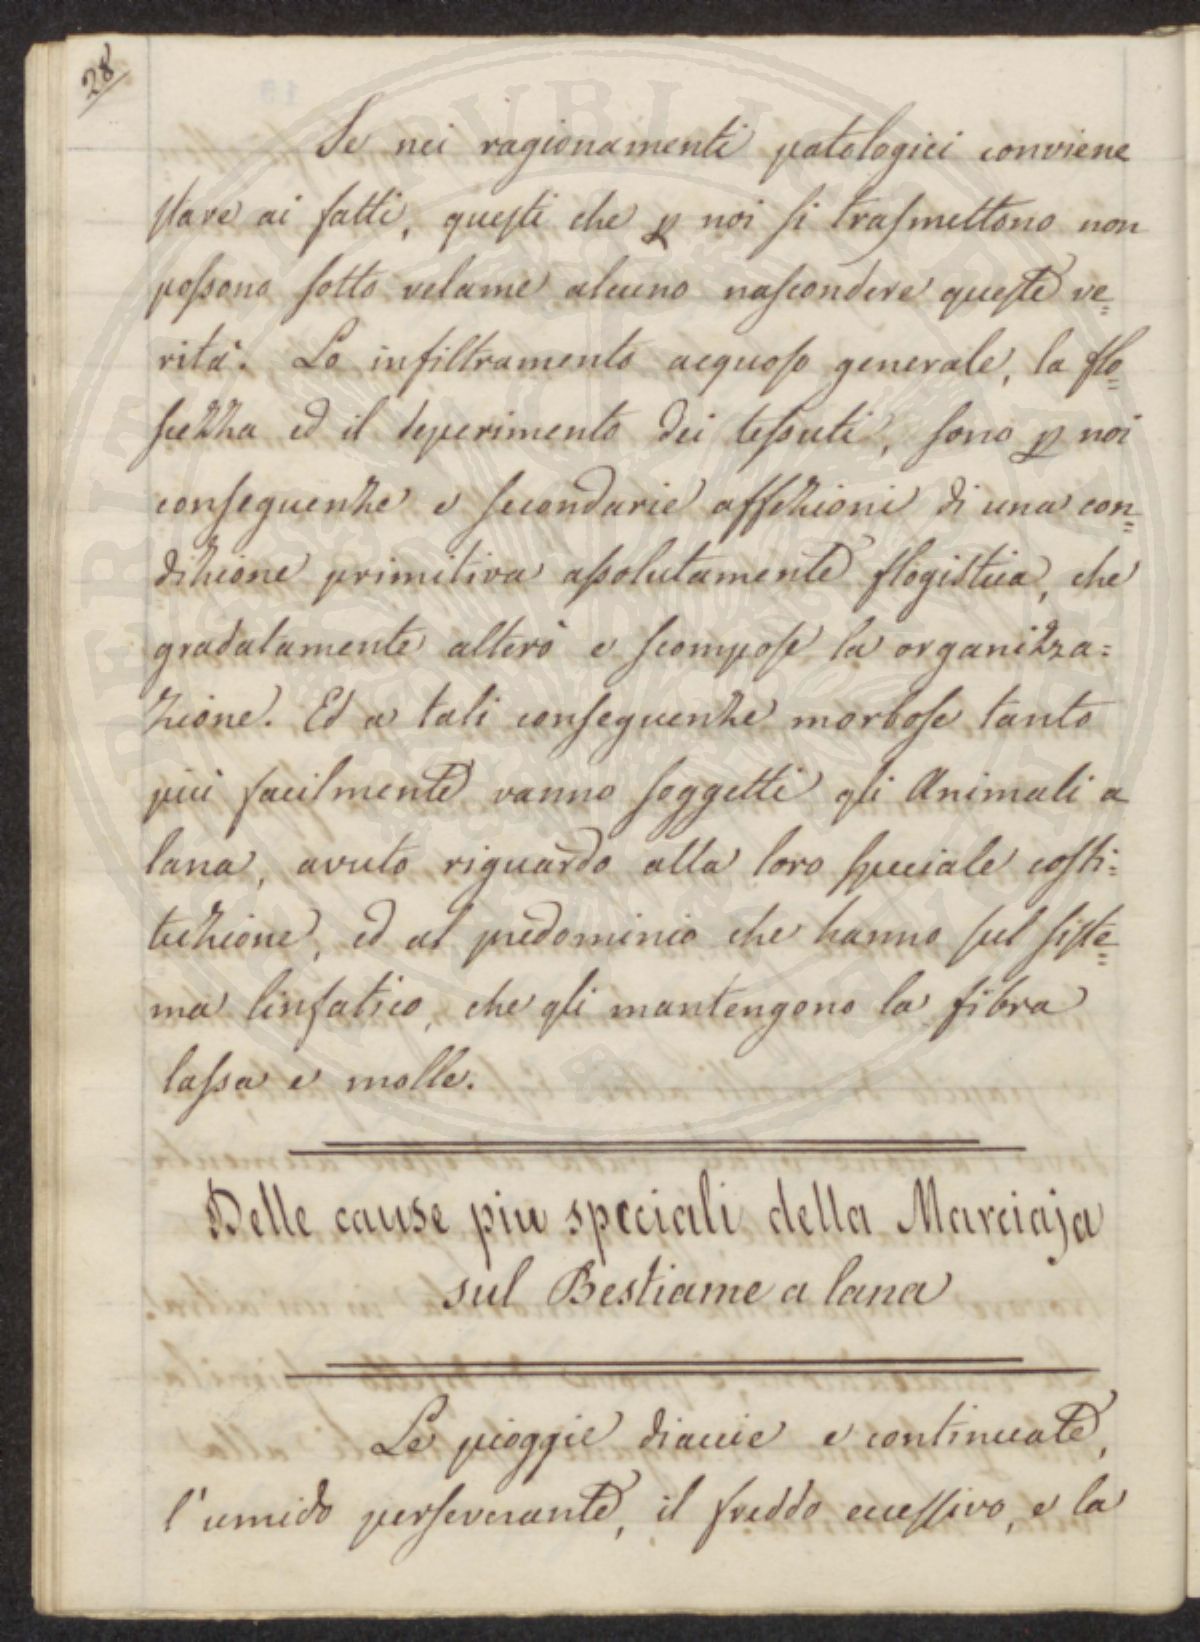 28
Se nei ragionamenti patologici conviene
stare ai fatti, questi che p noi si trasmettono non
possono sotto velame alcuno nascondere queste ve=
rità. Lo infiltramento acquoso generale, la flo=
scezza ed il deperimento dei tessuti, sono p noi
conseguenze e secondarie affezioni di una con=
dizione primitiva assolutamente flogistica, che
gradatamente alterò e scompose la organizza=
zione. Ed a tali conseguenze morbose tanto
più facilmente vanno soggetti gli Animali a
lana, avuto riguardo alla loro speciale costi=
tuzione, ed al predominio che hanno sul siste=
ma linfatico, che gli mantengono la fibra
lassa e molle.
Delle cause piu speciali della Marciaja
sul Bestiame a lana
Le pioggie diaccie e continuate,
l'umido perseverante, il freddo eccessivo, e la